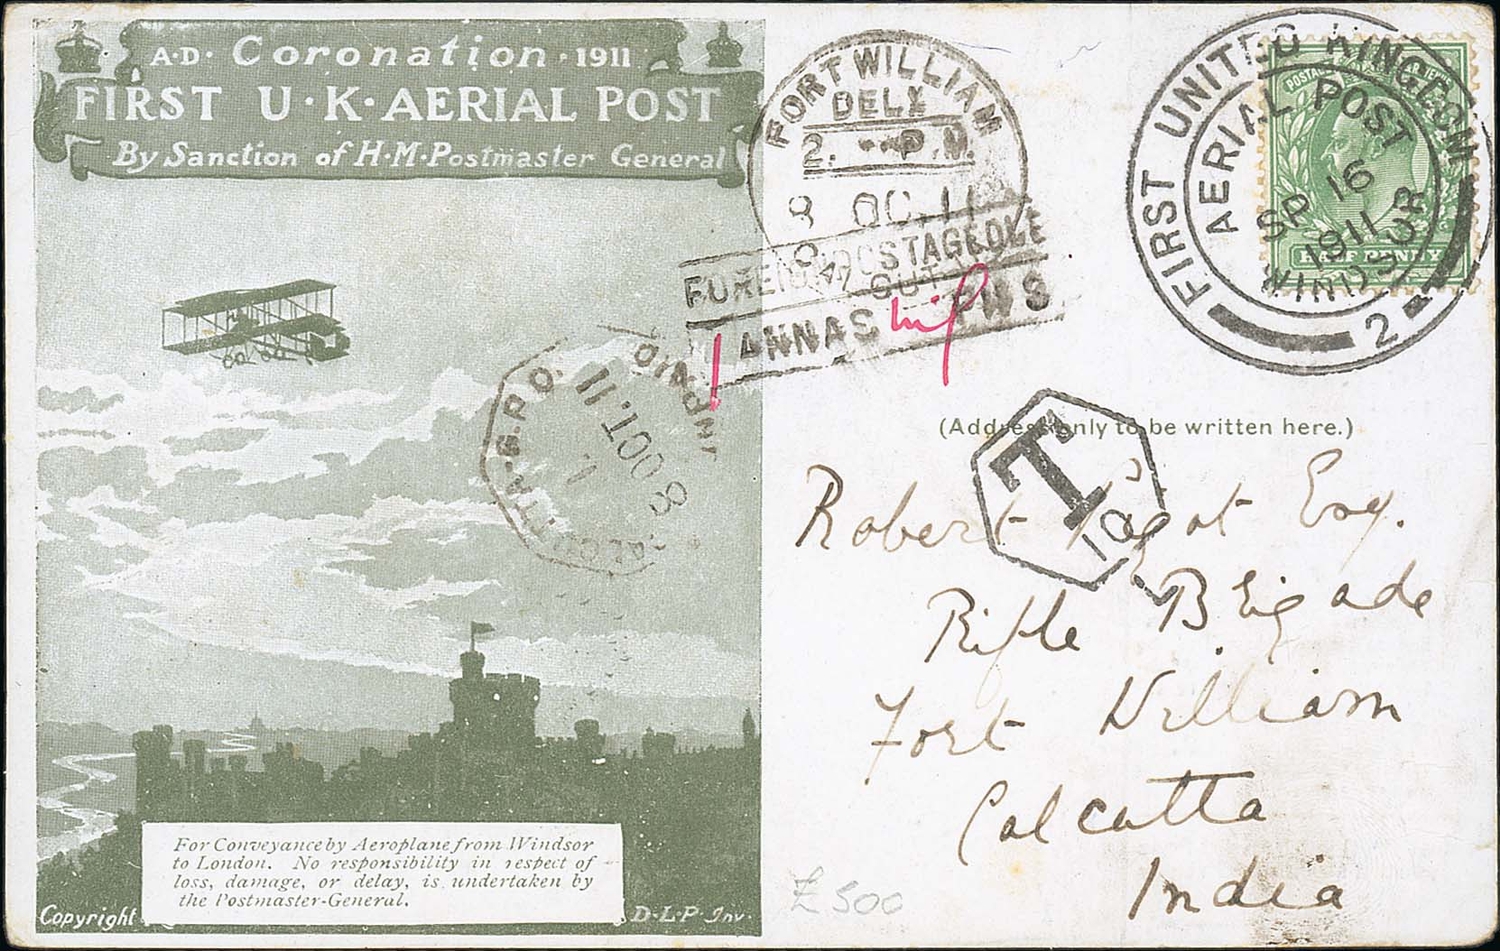 A·D· Coronation · 1911
FIRST U·K·AERIAL POST
By Sanction of H·M·Postmaster General
For Conveyance by Aeroplane from Windsor
to London. No responsibility in respect of
loss, damage, or delay, is undertaken by
the Postmaster-General.
Copyright
D·L·P·Inv.
FORT WILLIAM
DELY
2. P.M.
8 OC.11
FOREIGN POSTAGE DUE
OUT
1 ANNAS nil PIES
CALCUTTA G.P.O.
8 OCT. 11
FIRST UNITED KINGDOM
AERIAL POST
SP 16
1911
WINDSOR
2
POSTAGE
HALF PENNY
(Address only to be written here.)
T
10
Robert Esq.
Rifle Brigade
Fort William
Calcutta
India
£500